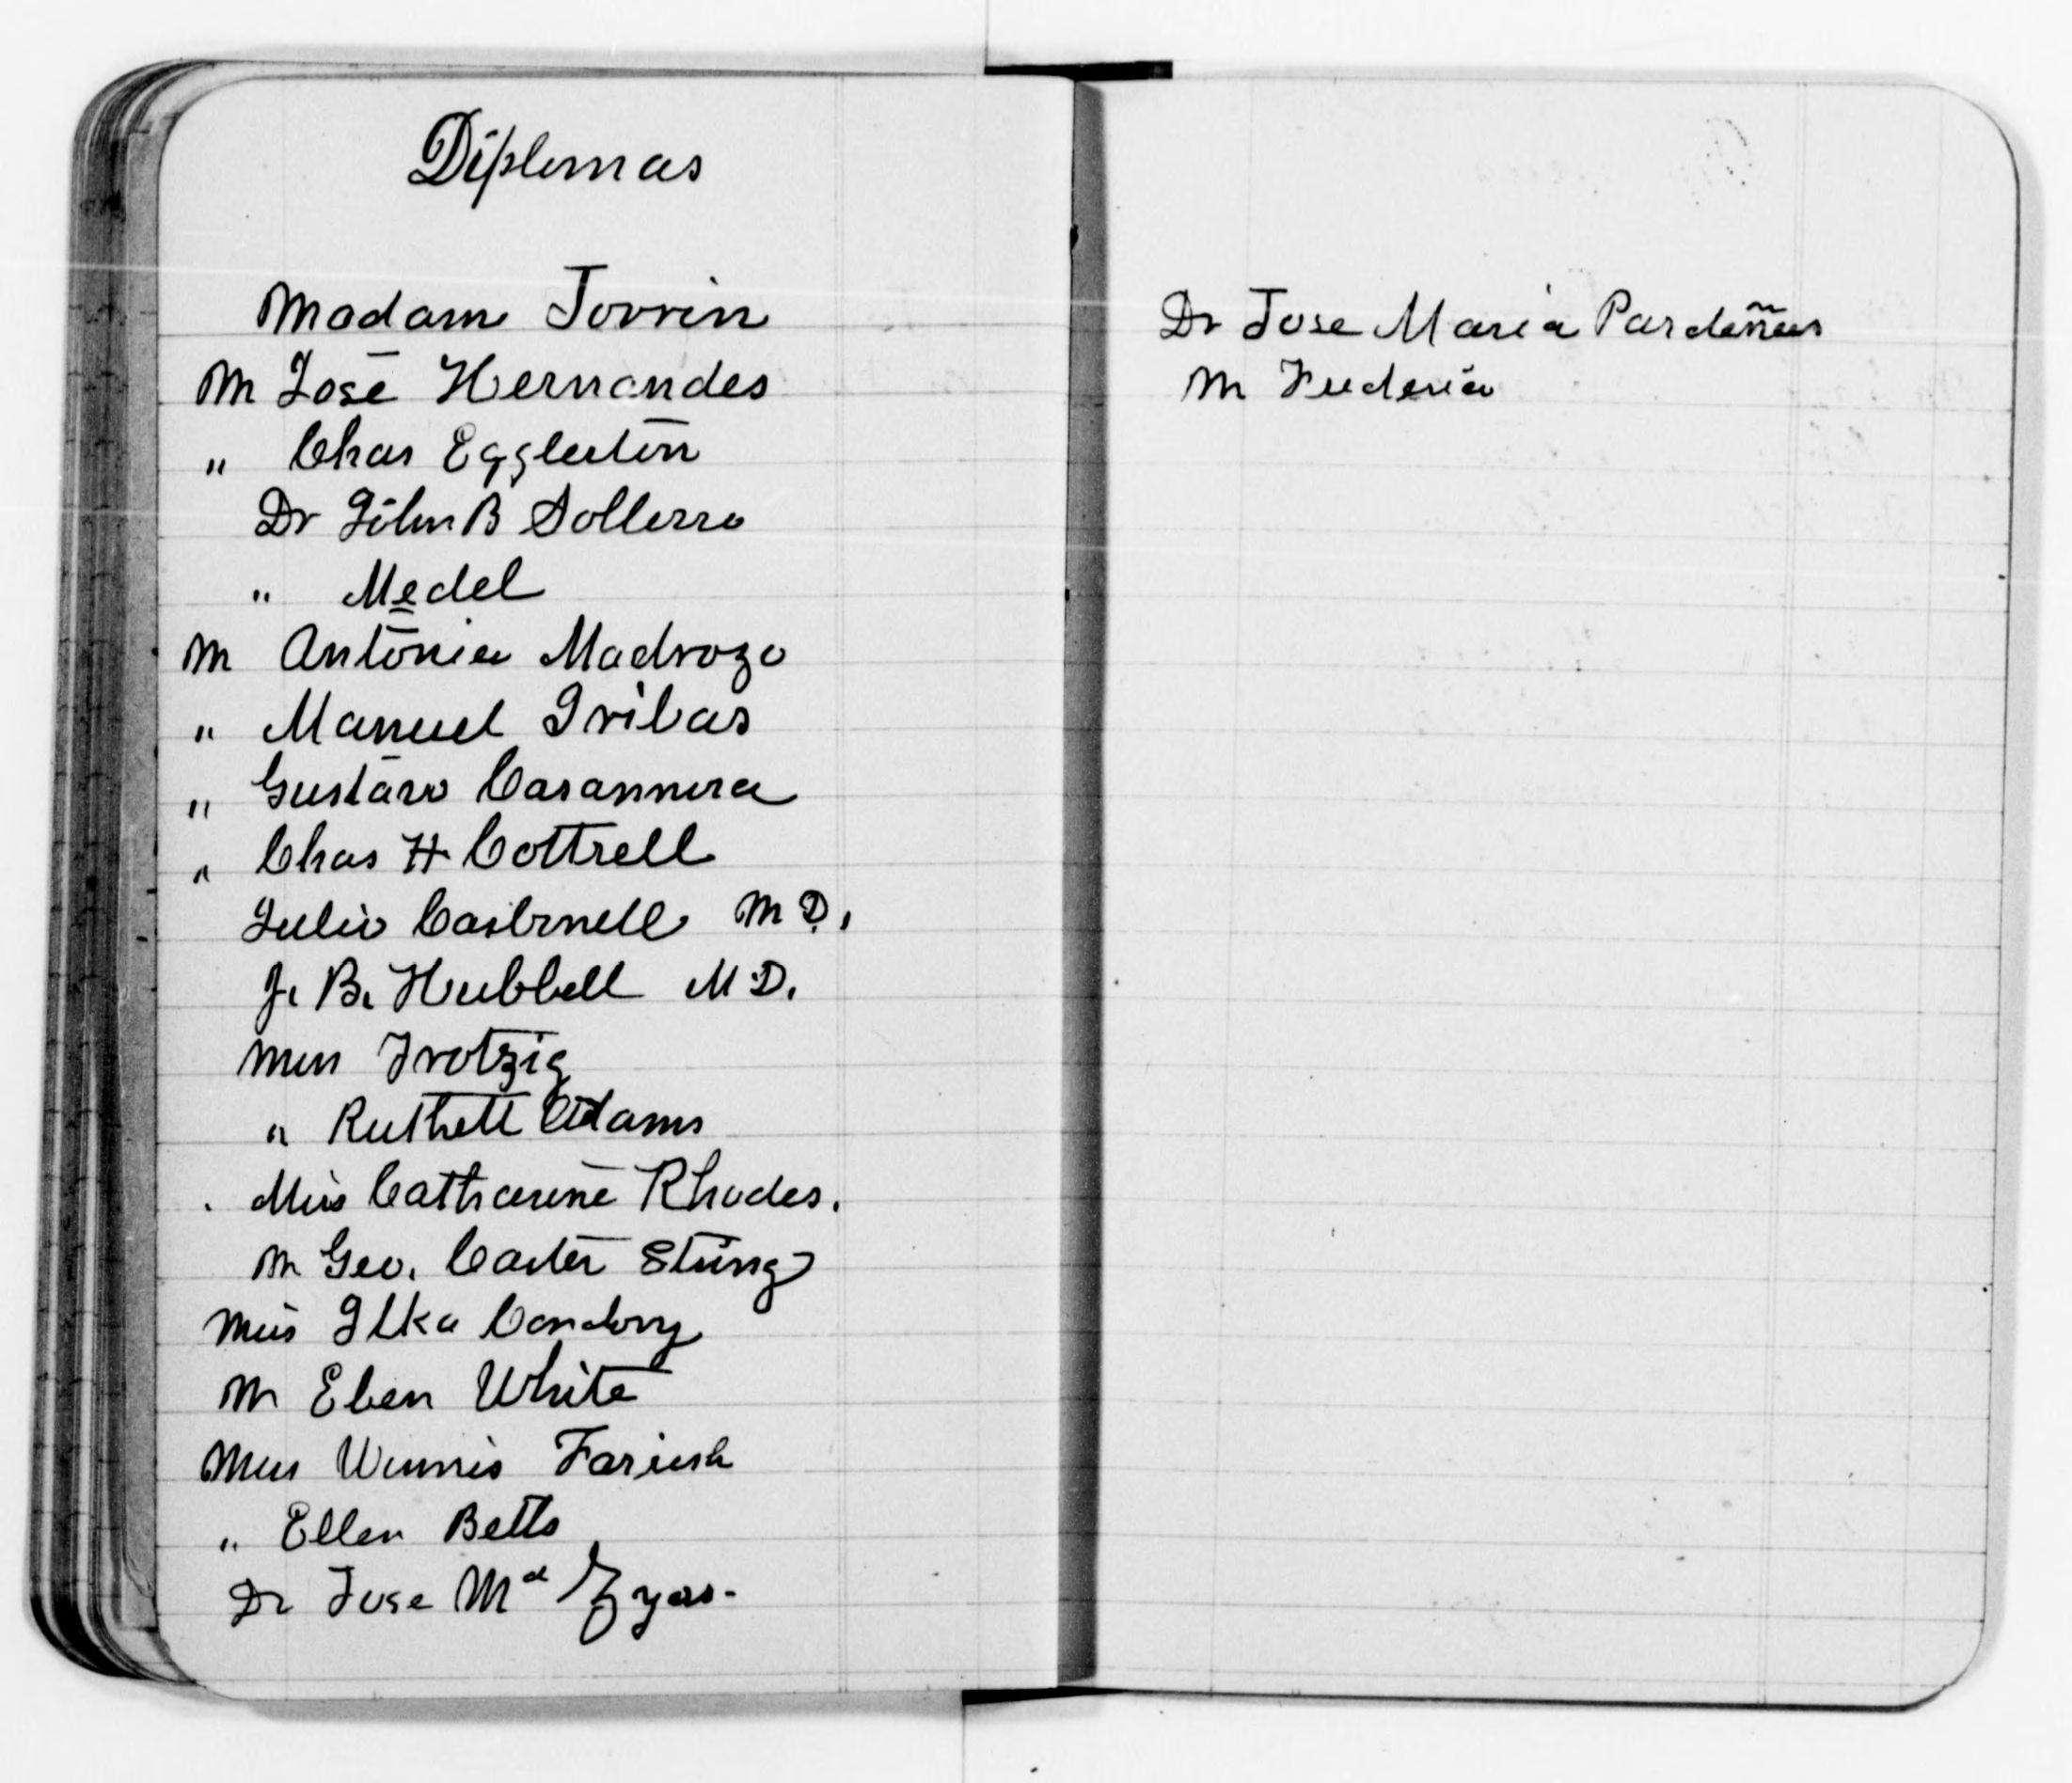 Diplomas
Madame Torrin
M José Hernandes
" Chas Eggleston
Dr John B Sollerro
" Medel
M Antonia Madrozo
" Manuel Gribas
" Gustavo
" Chas H Cottrell
Julio M D.
J. B. Hubbell M D.
Miss Trotzig
" Ruthett Adams
Miss Catharine Rhodes.
M Geo. Carter
Miss Ilka Condory
M Eben White
Miss Winnis Farish
" Ellen Betts
Dr Jose Ma Zyas.
Dr Jose Maria Pardeñas
M